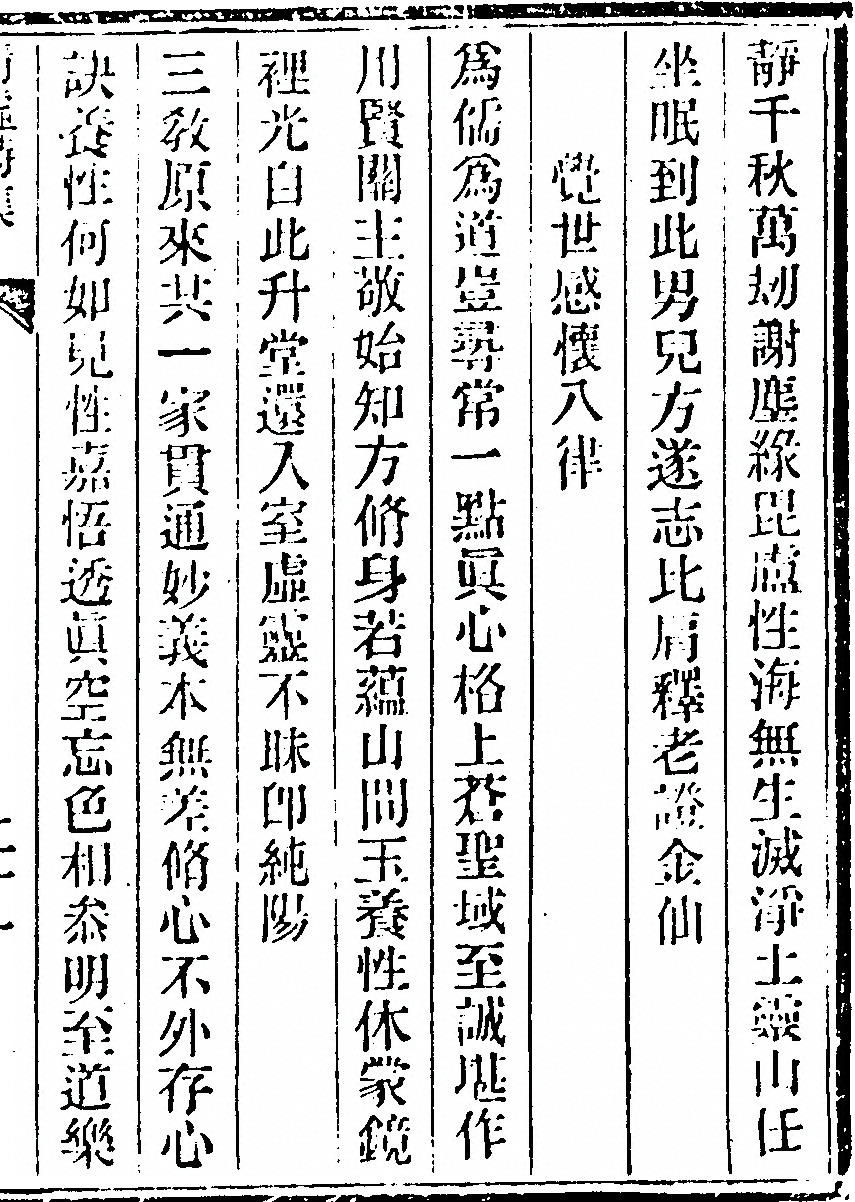 靜千秋萬刼謝塵緣毘盧性海無生滅淨土靈山任
坐眠到此男兒方遂志比肩釋老證金仙
覺世感懷八律
爲儒爲道豈尋常一點眞心格上蒼聖域至誠堪作
川賢關主敬始知方脩身若蘊山間玉養性休蒙鏡
裡光自此升堂還入室虛靈不昧卽純陽
三敎原來共一家貫通妙義本無差脩心不外存心
訣養性何如見性嘉悟透眞空忘色相叅明至道樂